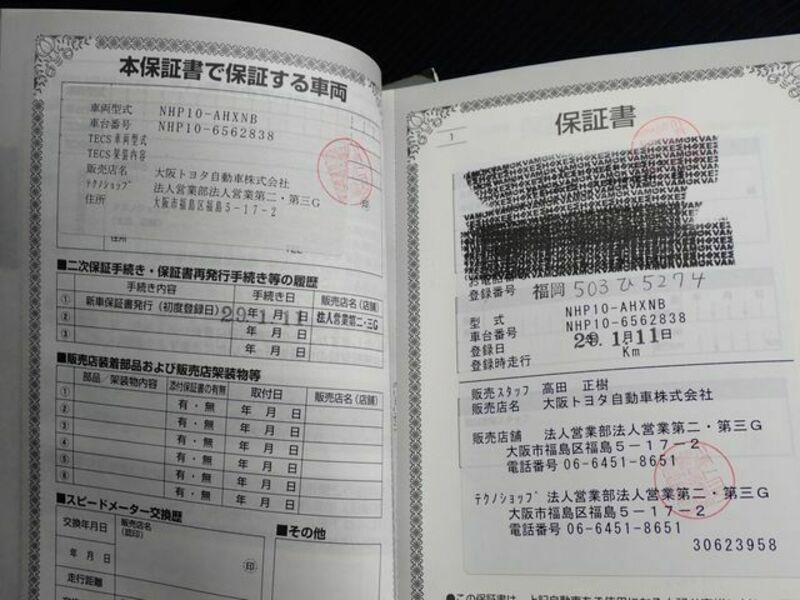 本保証書で保証する車両
車両型式 NHP10-AHXNB
車台番号 NHP10-6562838
TECS車両型式
TECS架装内容
販売店名 大阪トヨタ自動車株式会社
ﾃｸﾉｼｮｯﾌﾟ 法人営業部法人営業第二・第三G
住所 大阪市福島区福島5-17-2
印
住所
■二次保証手続き・保証書再発行手続き等の履歴
手続き内容 手続き日 販売店名(店舗)
① 新車保証書発行(初度登録日) 29年1月11日 法人営業第二・三G
② 年 月 日
③ 年 月 日
■販売店装着部品および販売店架装物等
部品/架装物内容 添付保証書の有無 取付日 販売店名(店舗)
① 有・無 年 月 日
② 有・無 年 月 日
③ 有・無 年 月 日
④ 有・無 年 月 日
⑤ 有・無 年 月 日
⑥ 有・無 年 月 日
■スピードメーター交換歴
交換年月日 販売店名
(認印)
年 月 日 印
走行距離
■その他
1
保証書
登録番号 福岡503ひ5274
型式 NHP10-AHXNB
車台番号 NHP10-6562838
登録日 29年1月11日
登録時走行 Km
販売スタッフ 高田 正樹
販売店名 大阪トヨタ自動車株式会社
販売店舗 法人営業部法人営業第二・第三G
大阪市福島区福島5-17-2
電話番号 06-6451-8651
ﾃｸﾉｼｮｯﾌﾟ 法人営業部法人営業第二・第三G
大阪市福島区福島5-17-2
電話番号 06-6451-8651
30623958